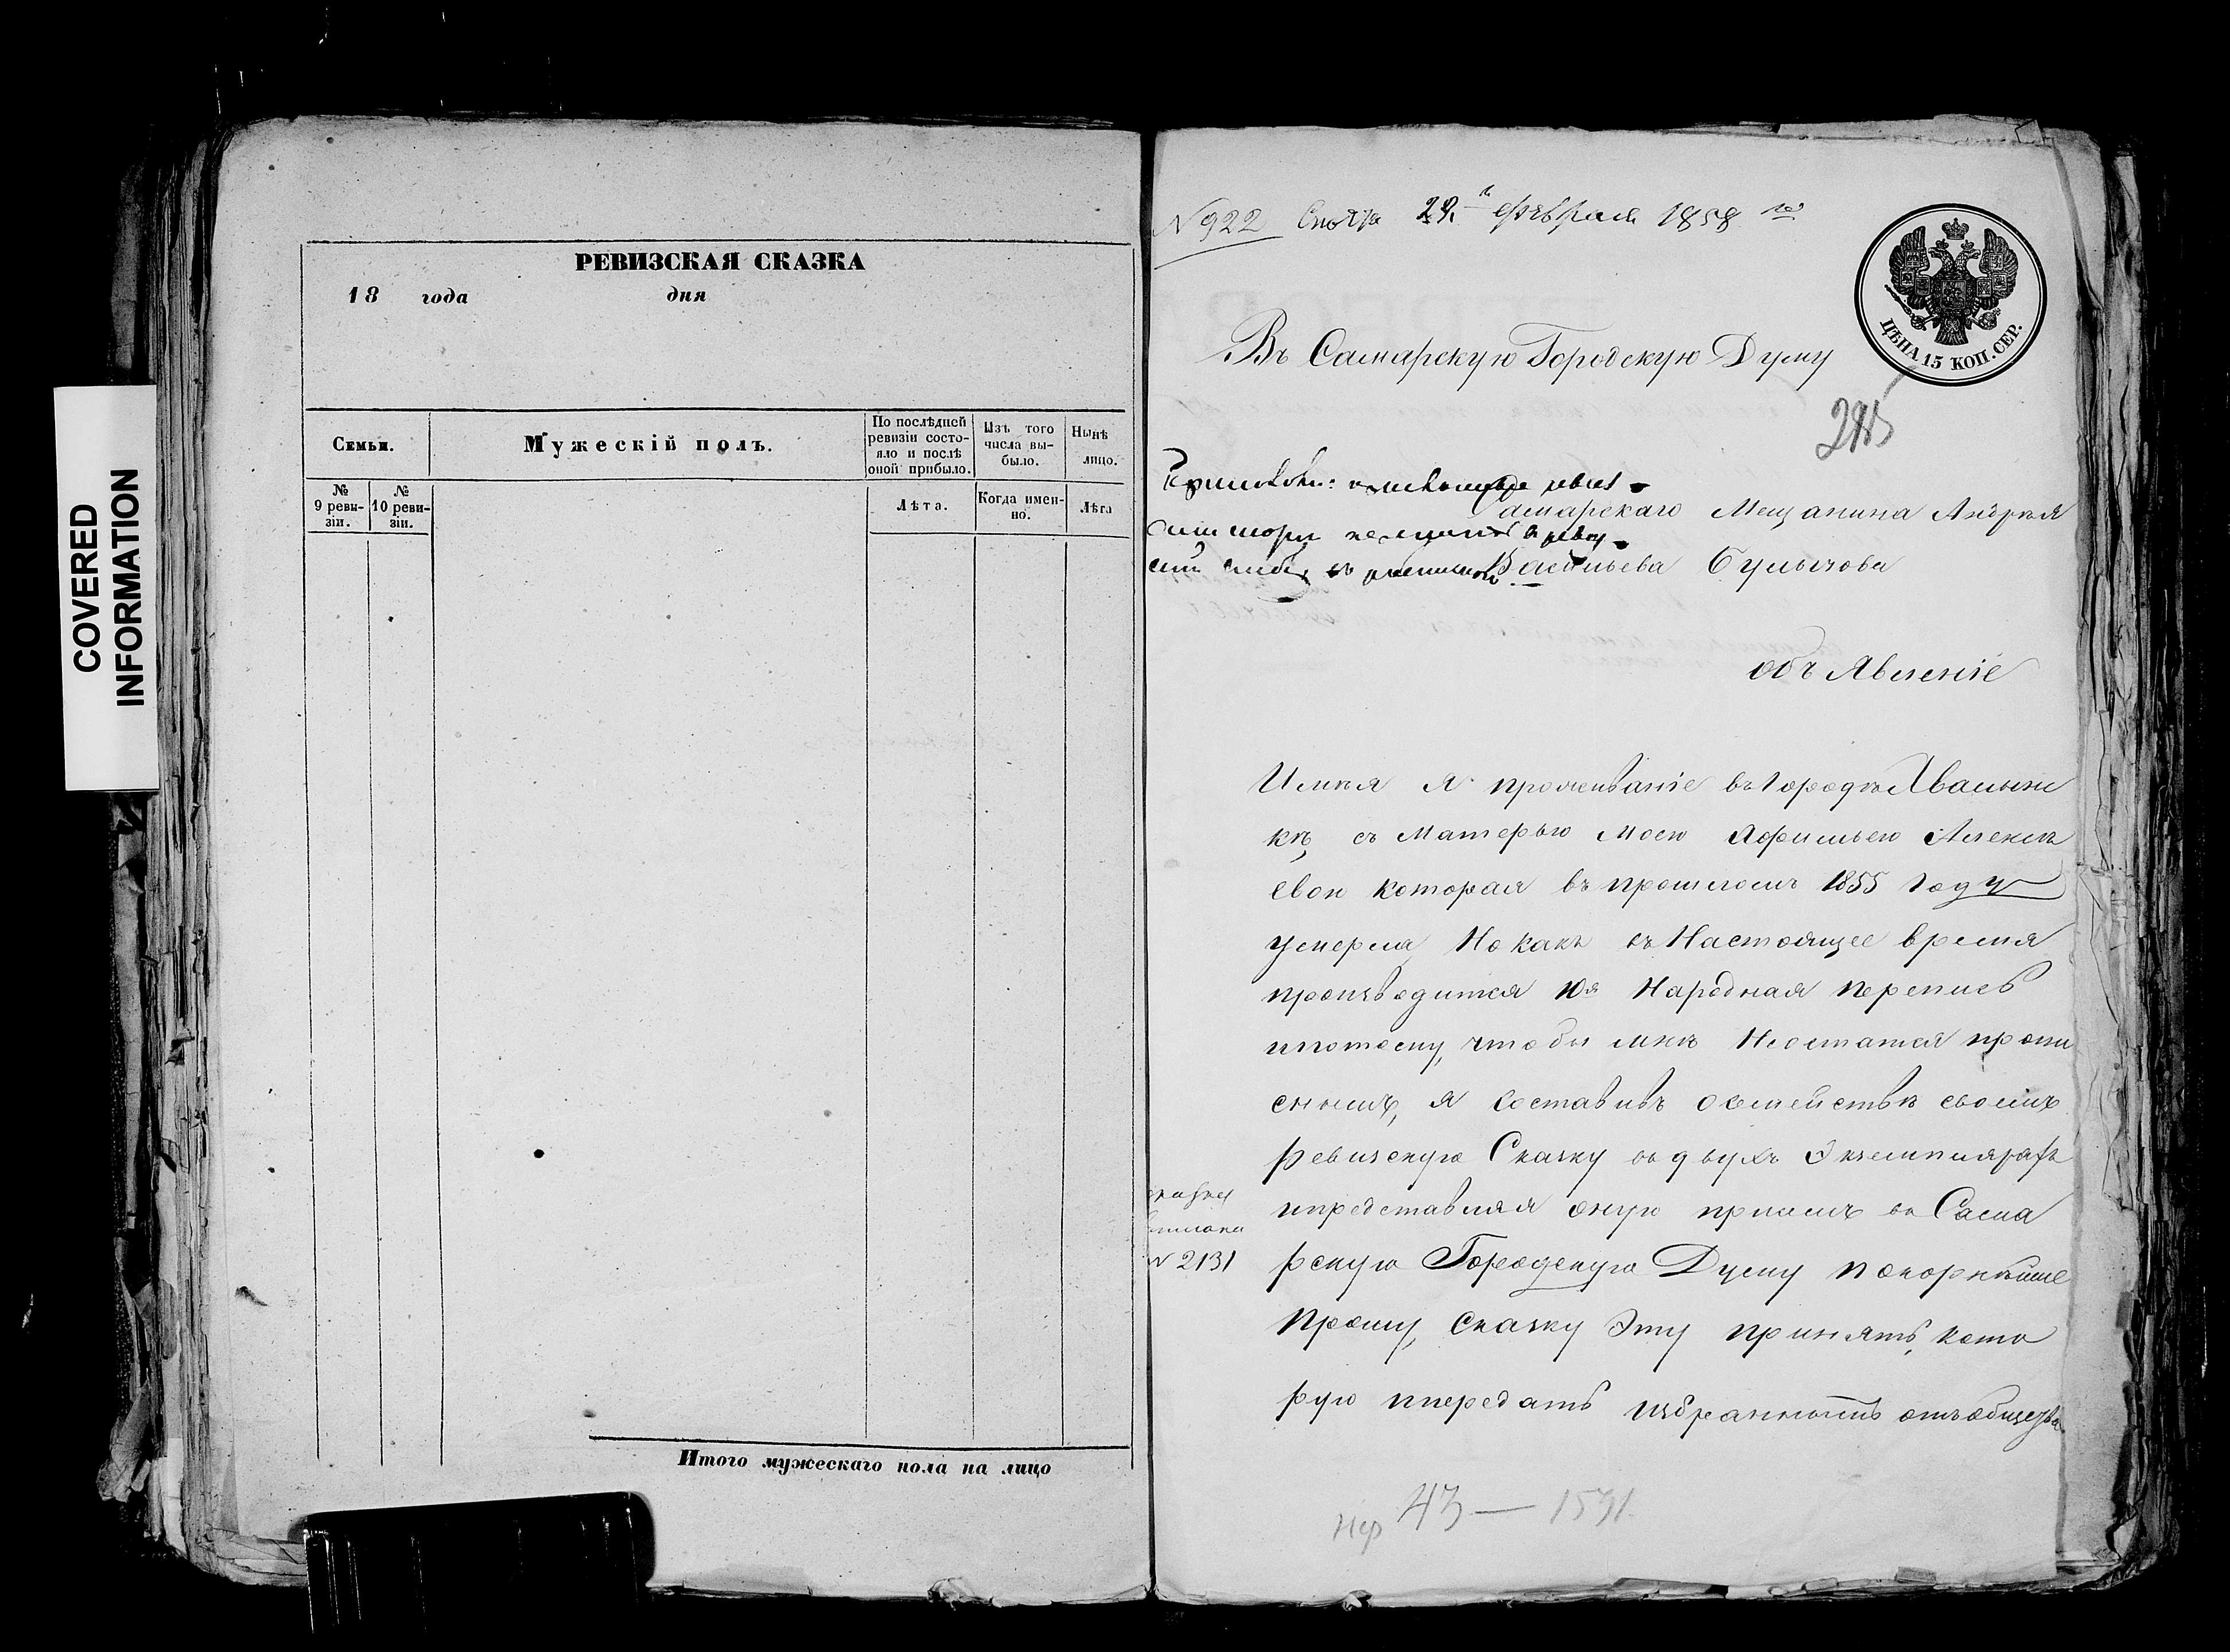 COVERED
INFORMATION
РЕВИЗСКАЯ СКАЗКА
18 года дня
Семьи.
Мужескій полъ.
По послѣдней ревизіи состояло и послѣ оной прибыло.
Изъ того числа выбыло.
Нынѣ лицо.
№ 9 ревизіи.
№ 10 ревизіи.
Лѣта.
Когда именно.
Лѣта
Итого мужескаго пола на лицо
N 922 29 Февраля 1858 го
ЦѢНА 15 КОП. СЕР.
Въ Самарскую Городскую Думу
215
Самарскаго Мещанина Андрея
Васильева Булычова
объ Явленіе
Имѣя я проживаніе въ Городѣ Хвалынс
кѣ, съ Матерью Моею Афимьею Алексѣ
евою которая въ прошломъ 1855 Году
умерла, Но какъ въ Настоящее время
производится 10я Народная перепись
ипотому, чтобы мнѣ Неостатся пропи
снымъ, я составивъ осемействѣ своемъ
ревизскую Сказку въ двухъ Экземплярахъ
ипредставляя оную присемъ въ Сама
рскую Городскую Думу покорнѣйше
прошу, сказку Эту принять, кото
рую ипередать избраннымъ отъ общества
N 2131
43 — 1531